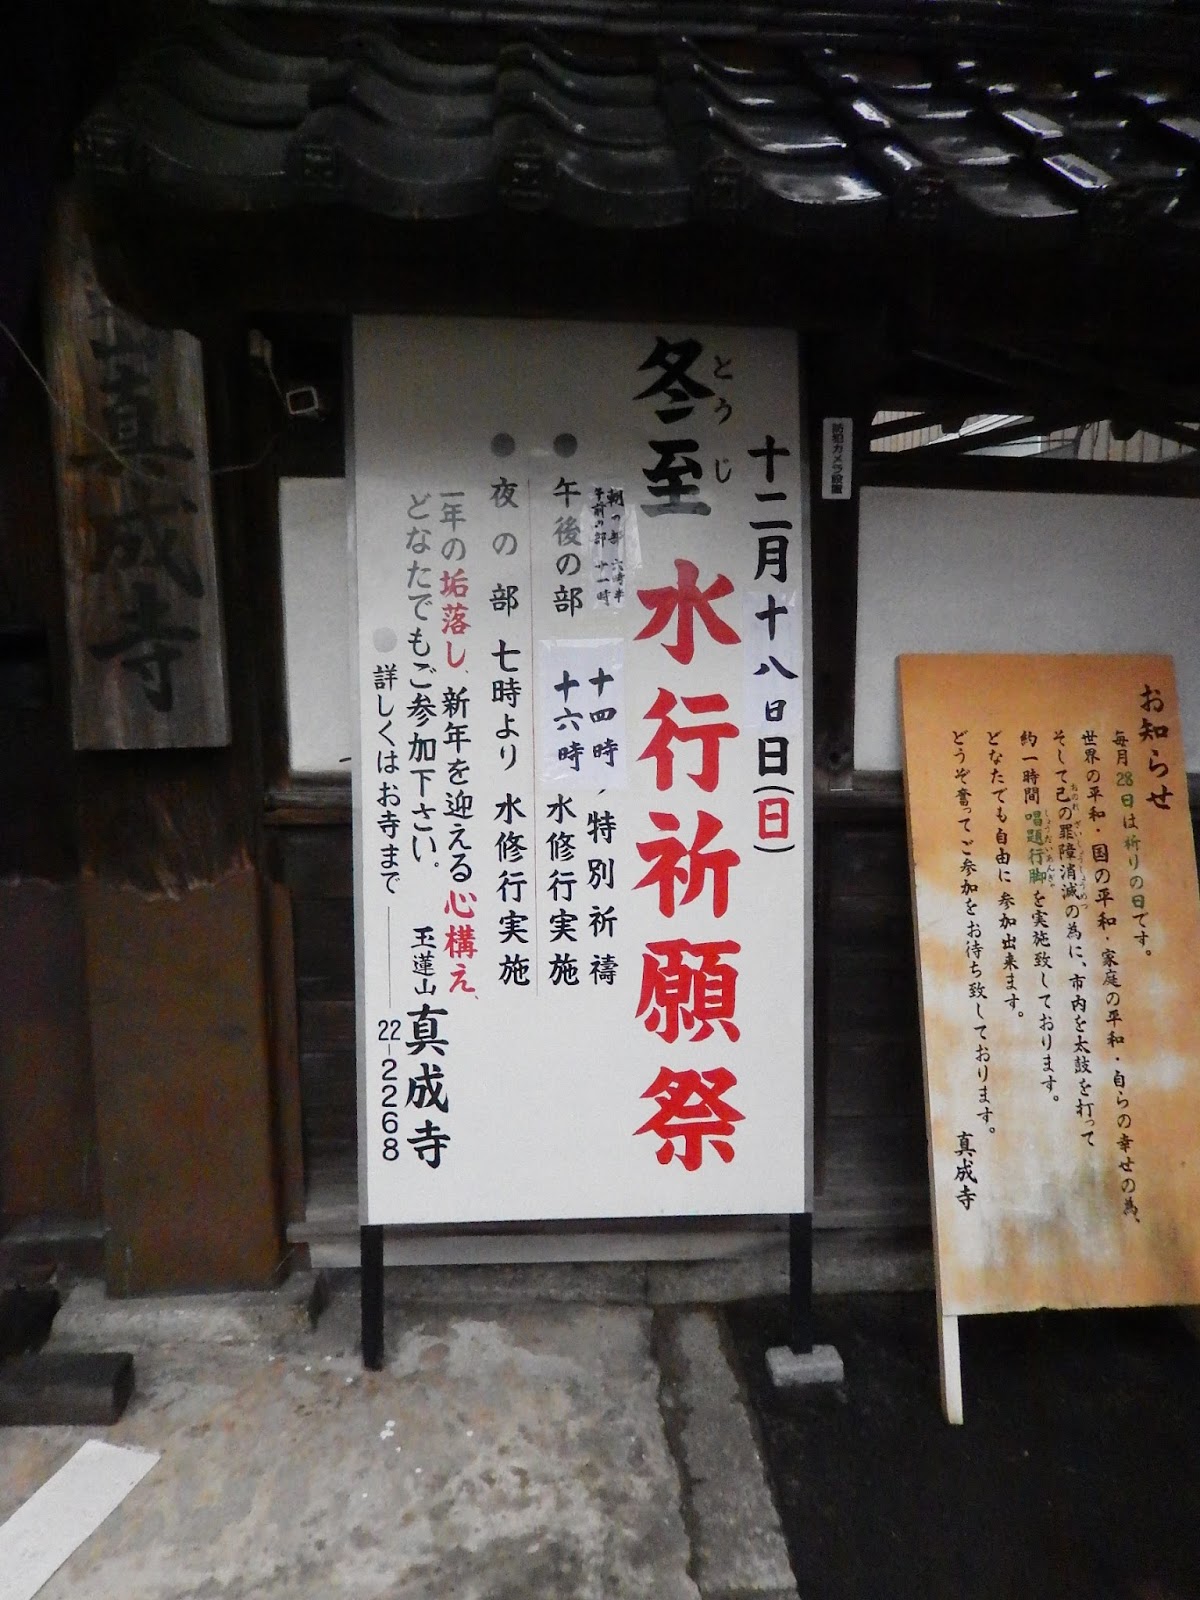 お知らせ
毎月28日は祈りの日です。
世界の平和・国の平和・家庭の平和・自らの幸せの為、
そして己の罪障消滅の為に、市内を太鼓を打って
おのれ ざいしょうしょうめつ
約一時間 唱題行脚を実施致しております。
しょうだいあんぎゃ
どなたでも自由に参加出来ます。
どうぞ奮ってご参加をお待ち致しております。
真成寺
防犯カメラ設置
十二月十八日日(日)
冬至 水行祈願祭
とうじ
朝の部 六時半
午前の部 十一時
十四時、特別祈禱
●午後の部 十六時 水修行実施
●夜の部 七時より 水修行実施
一年の垢落し、新年を迎える心構え、
どなたでもご参加下さい。 玉蓮山 真成寺
●詳しくはお寺まで――22-2268
真成寺